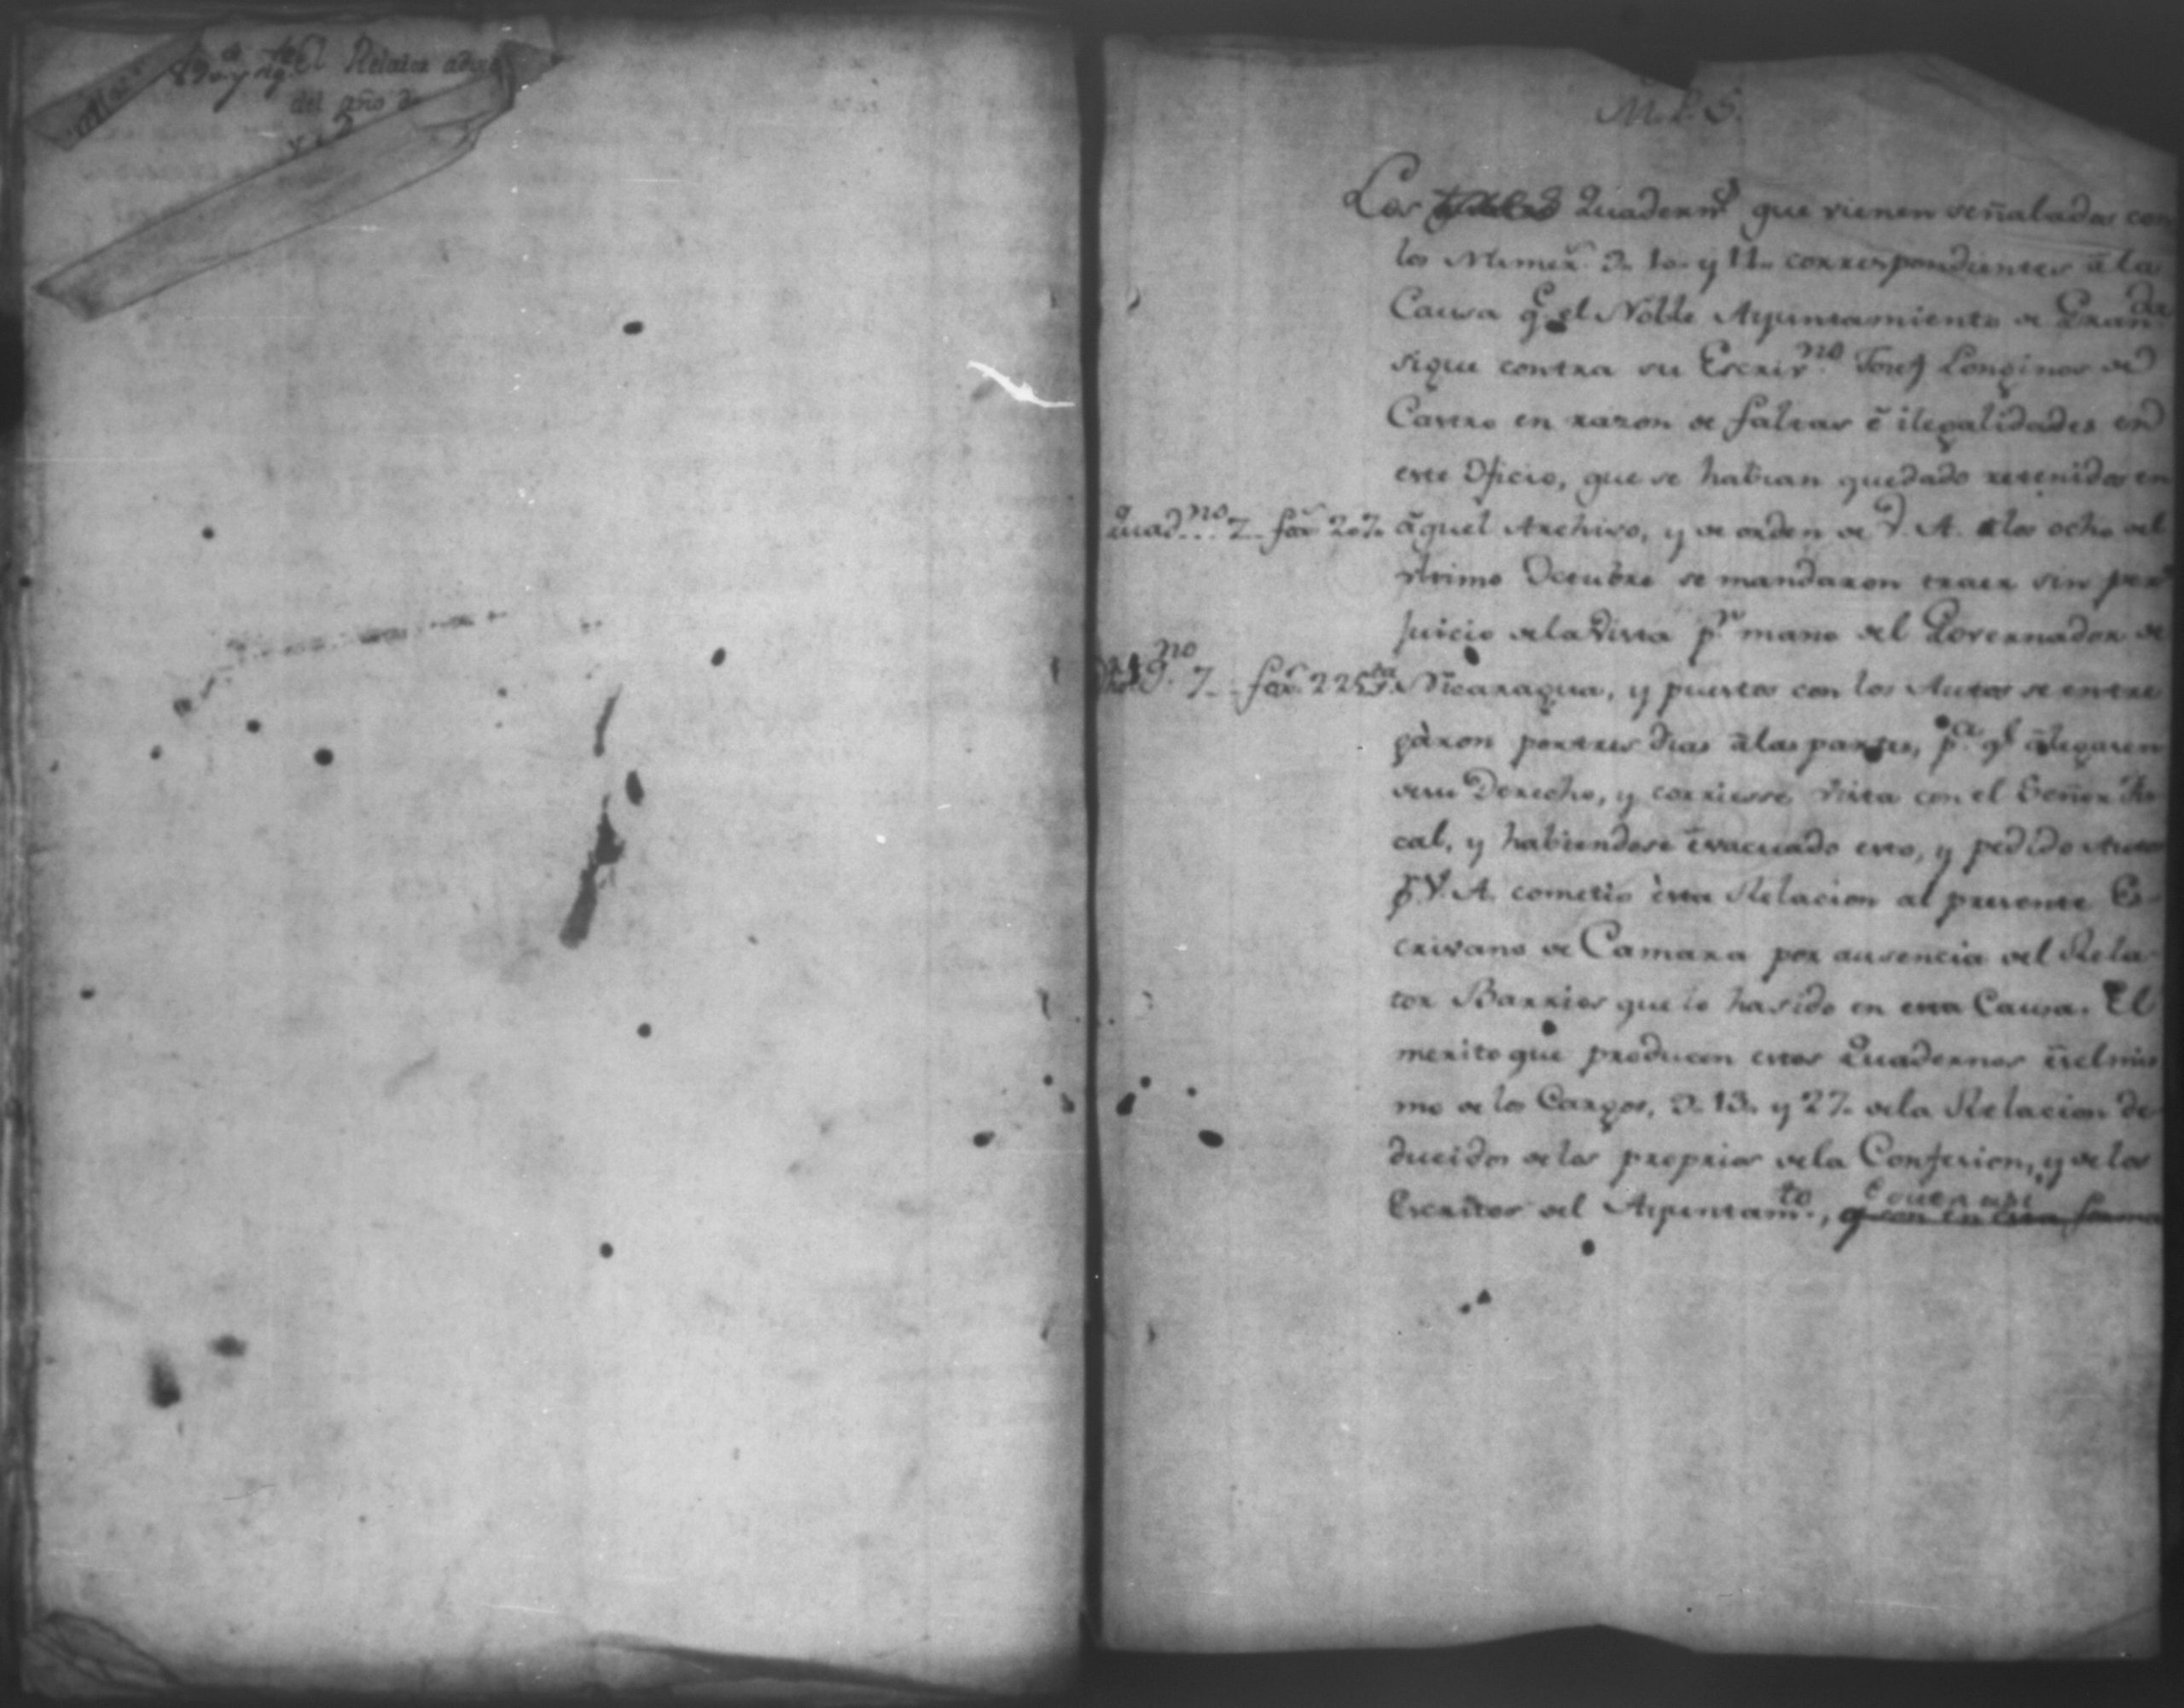 El Relator
del año de
M. P. S.
Los Quadern.s que vienen señalados con
los Numer.s 9. 10. y 11. correspondientes â la
Causa q.e el Noble Ayuntamiento de Gran.da
sigue contra su Escriv.no Jose Longinos de
Castro en razon de faltas ê ilegalidades en
este Oficio, que se habian quedado retenidos en
Quad.no 7. fox.s 207. âquel Archivo, y de orden de V. A. â los ocho del
ultimo Octubre se mandaron traer sin per
juicio dela Vista p.r mano del Governador de
no 7. fox.s 225 Nicaragua, y puestos con los Autos se entre
gàron por tres dias âlas partes, p.a q.e âlegasen
de su Derecho, y corriesse Vista con el Señor Fis
cal, y habiendose êvacuado esto, y pedido Autos
V. A. cometiò èsta Relacion al presente Es-
crivano de Camara por ausencia del Rela-
tor Barrios que lo ha sido en esta Causa. El
merito que producen estos Quadernos es el mis
mo de los Cargos, 9. 13. y 27. dela Relacion de
ducidos de los proprios dela Confesion, y de los
Escritos del Ayuntam.to, q son en esta forma